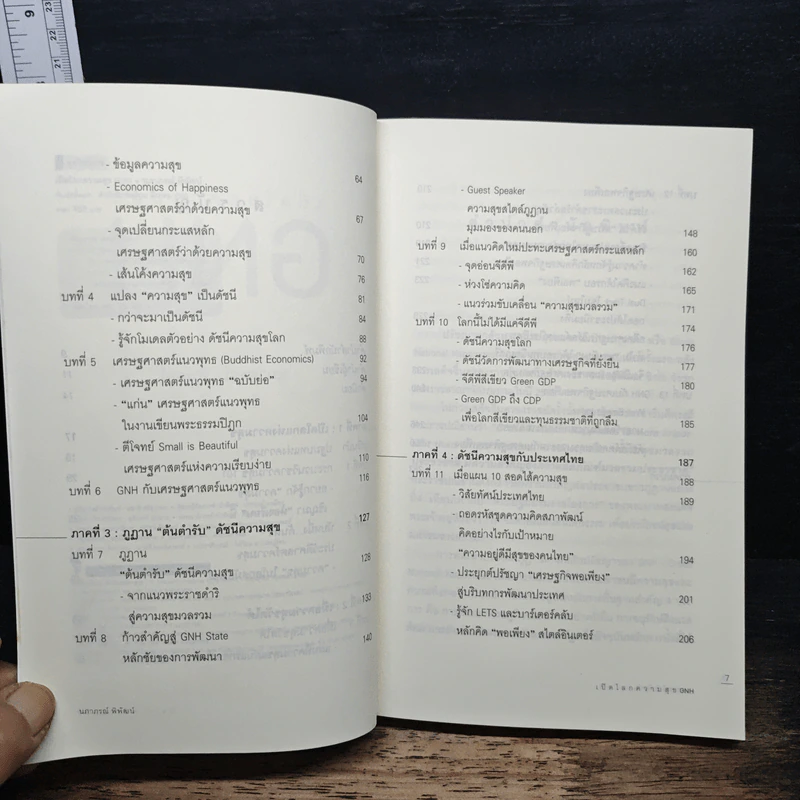 - ข้อมูลความสุข 64
- Economics of Happiness
เศรษฐศาสตร์ว่าด้วยความสุข 67
- จุดเปลี่ยนกระแสหลัก
เศรษฐศาสตร์ว่าด้วยความสุข 70
- เส้นโค้งความสุข 76
บทที่ 4 แปลง “ความสุข” เป็นดัชนี 81
- กว่าจะมาเป็นดัชนี 84
- รู้จักโมเดลตัวอย่าง ดัชนีความสุขโลก 88
บทที่ 5 เศรษฐศาสตร์แนวพุทธ (Buddhist Economics) 92
- เศรษฐศาสตร์แนวพุทธ “ฉบับย่อ” 94
- “แก่น” เศรษฐศาสตร์แนวพุทธ
ในงานเขียนพระธรรมปิฎก 104
- ตีโจทย์ Small is Beautiful
เศรษฐศาสตร์แห่งความเรียบง่าย 110
บทที่ 6 GNH กับเศรษฐศาสตร์แนวพุทธ 116
ภาคที่ 3 : ภูฏาน “ต้นตำรับ” ดัชนีความสุข 127
บทที่ 7 ภูฏาน
“ต้นตำรับ” ดัชนีความสุข 128
- จากแนวพระราชดำริ
สู่ความสุขมวลรวม 133
บทที่ 8 ก้าวสำคัญสู่ GNH State
หลักชัยของการพัฒนา 140
นภาภรณ์ พิพัฒน์
- Guest Speaker
ความสุขสไตล์ภูฏาน
มุมมองของคนนอก 148
บทที่ 9 เมื่อแนวคิดใหม่ปะทะเศรษฐศาสตร์กระแสหลัก 160
- จุดอ่อนจีดีพี 162
- ห่วงโซ่ความคิด 165
- แนวร่วมขับเคลื่อน “ความสุขมวลรวม” 171
บทที่ 10 โลกนี้ไม่ได้มีแค่จีดีพี 174
- ดัชนีความสุขโลก 176
- ดัชนีวัดการพัฒนาทางเศรษฐกิจที่ยั่งยืน 177
- จีดีพีสีเขียว Green GDP 180
- Green GDP ถึง CDP
เพื่อโลกสีเขียวและทุนธรรมชาติที่ถูกลืม 185
ภาคที่ 4 : ดัชนีความสุขกับประเทศไทย 187
บทที่ 11 เมื่อแผน 10 สอดไส้ความสุข 188
- วิสัยทัศน์ประเทศไทย 189
- ถอดรหัสชุดความคิดสภาพัฒน์
คิดอย่างไรกับเป้าหมาย
“ความอยู่ดีมีสุขของคนไทย” 194
- ประยุกต์ปรัชญา “เศรษฐกิจพอเพียง”
สู่บริบทการพัฒนาประเทศ 201
- รู้จัก LETS และบาร์เตอร์คลับ
หลักคิด “พอเพียง” สไตล์อินเตอร์ 206
7
เปิดโลกความสุข GNH